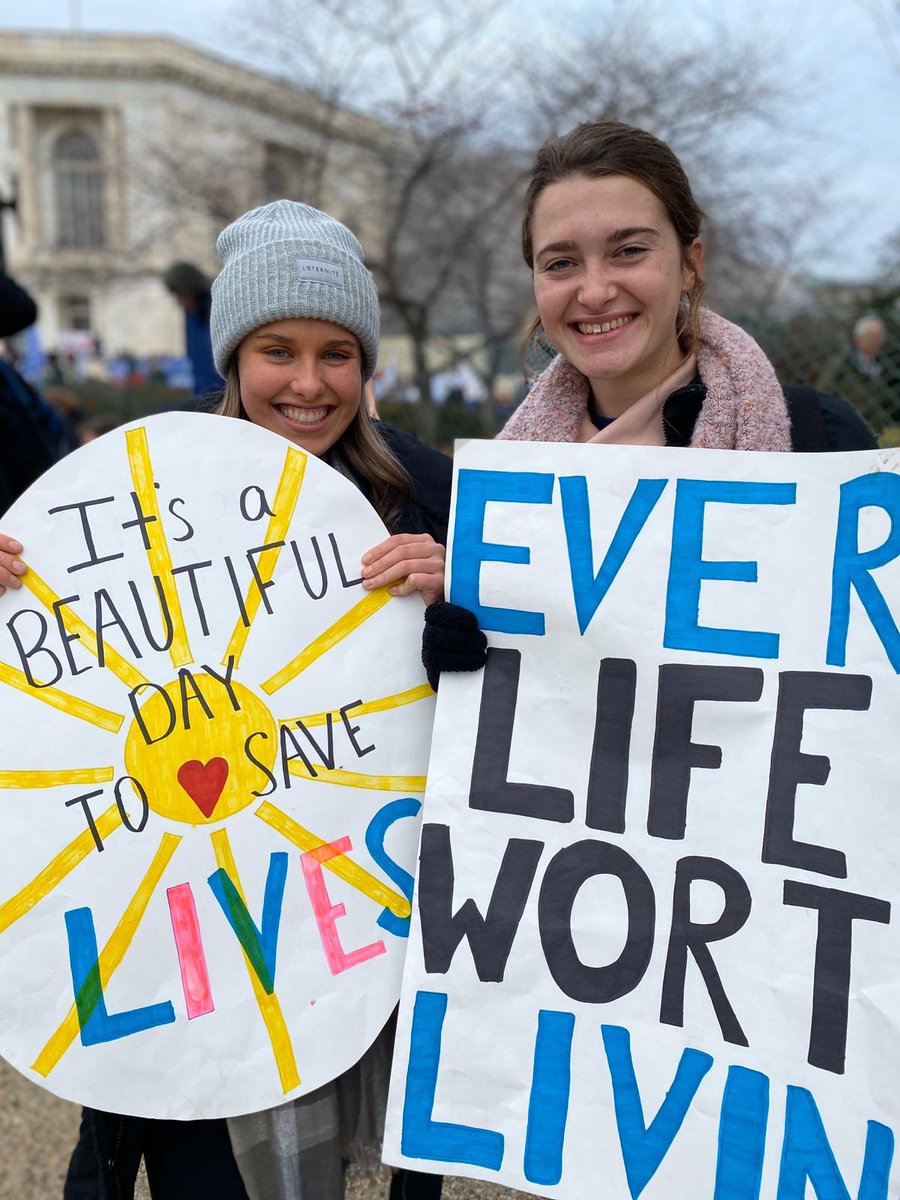 L'ETERNITÉ
It's a
BEAUTIFUL
DAY
TO SAVE
LIVES
EVER
LIFE
WORT
LIVIN